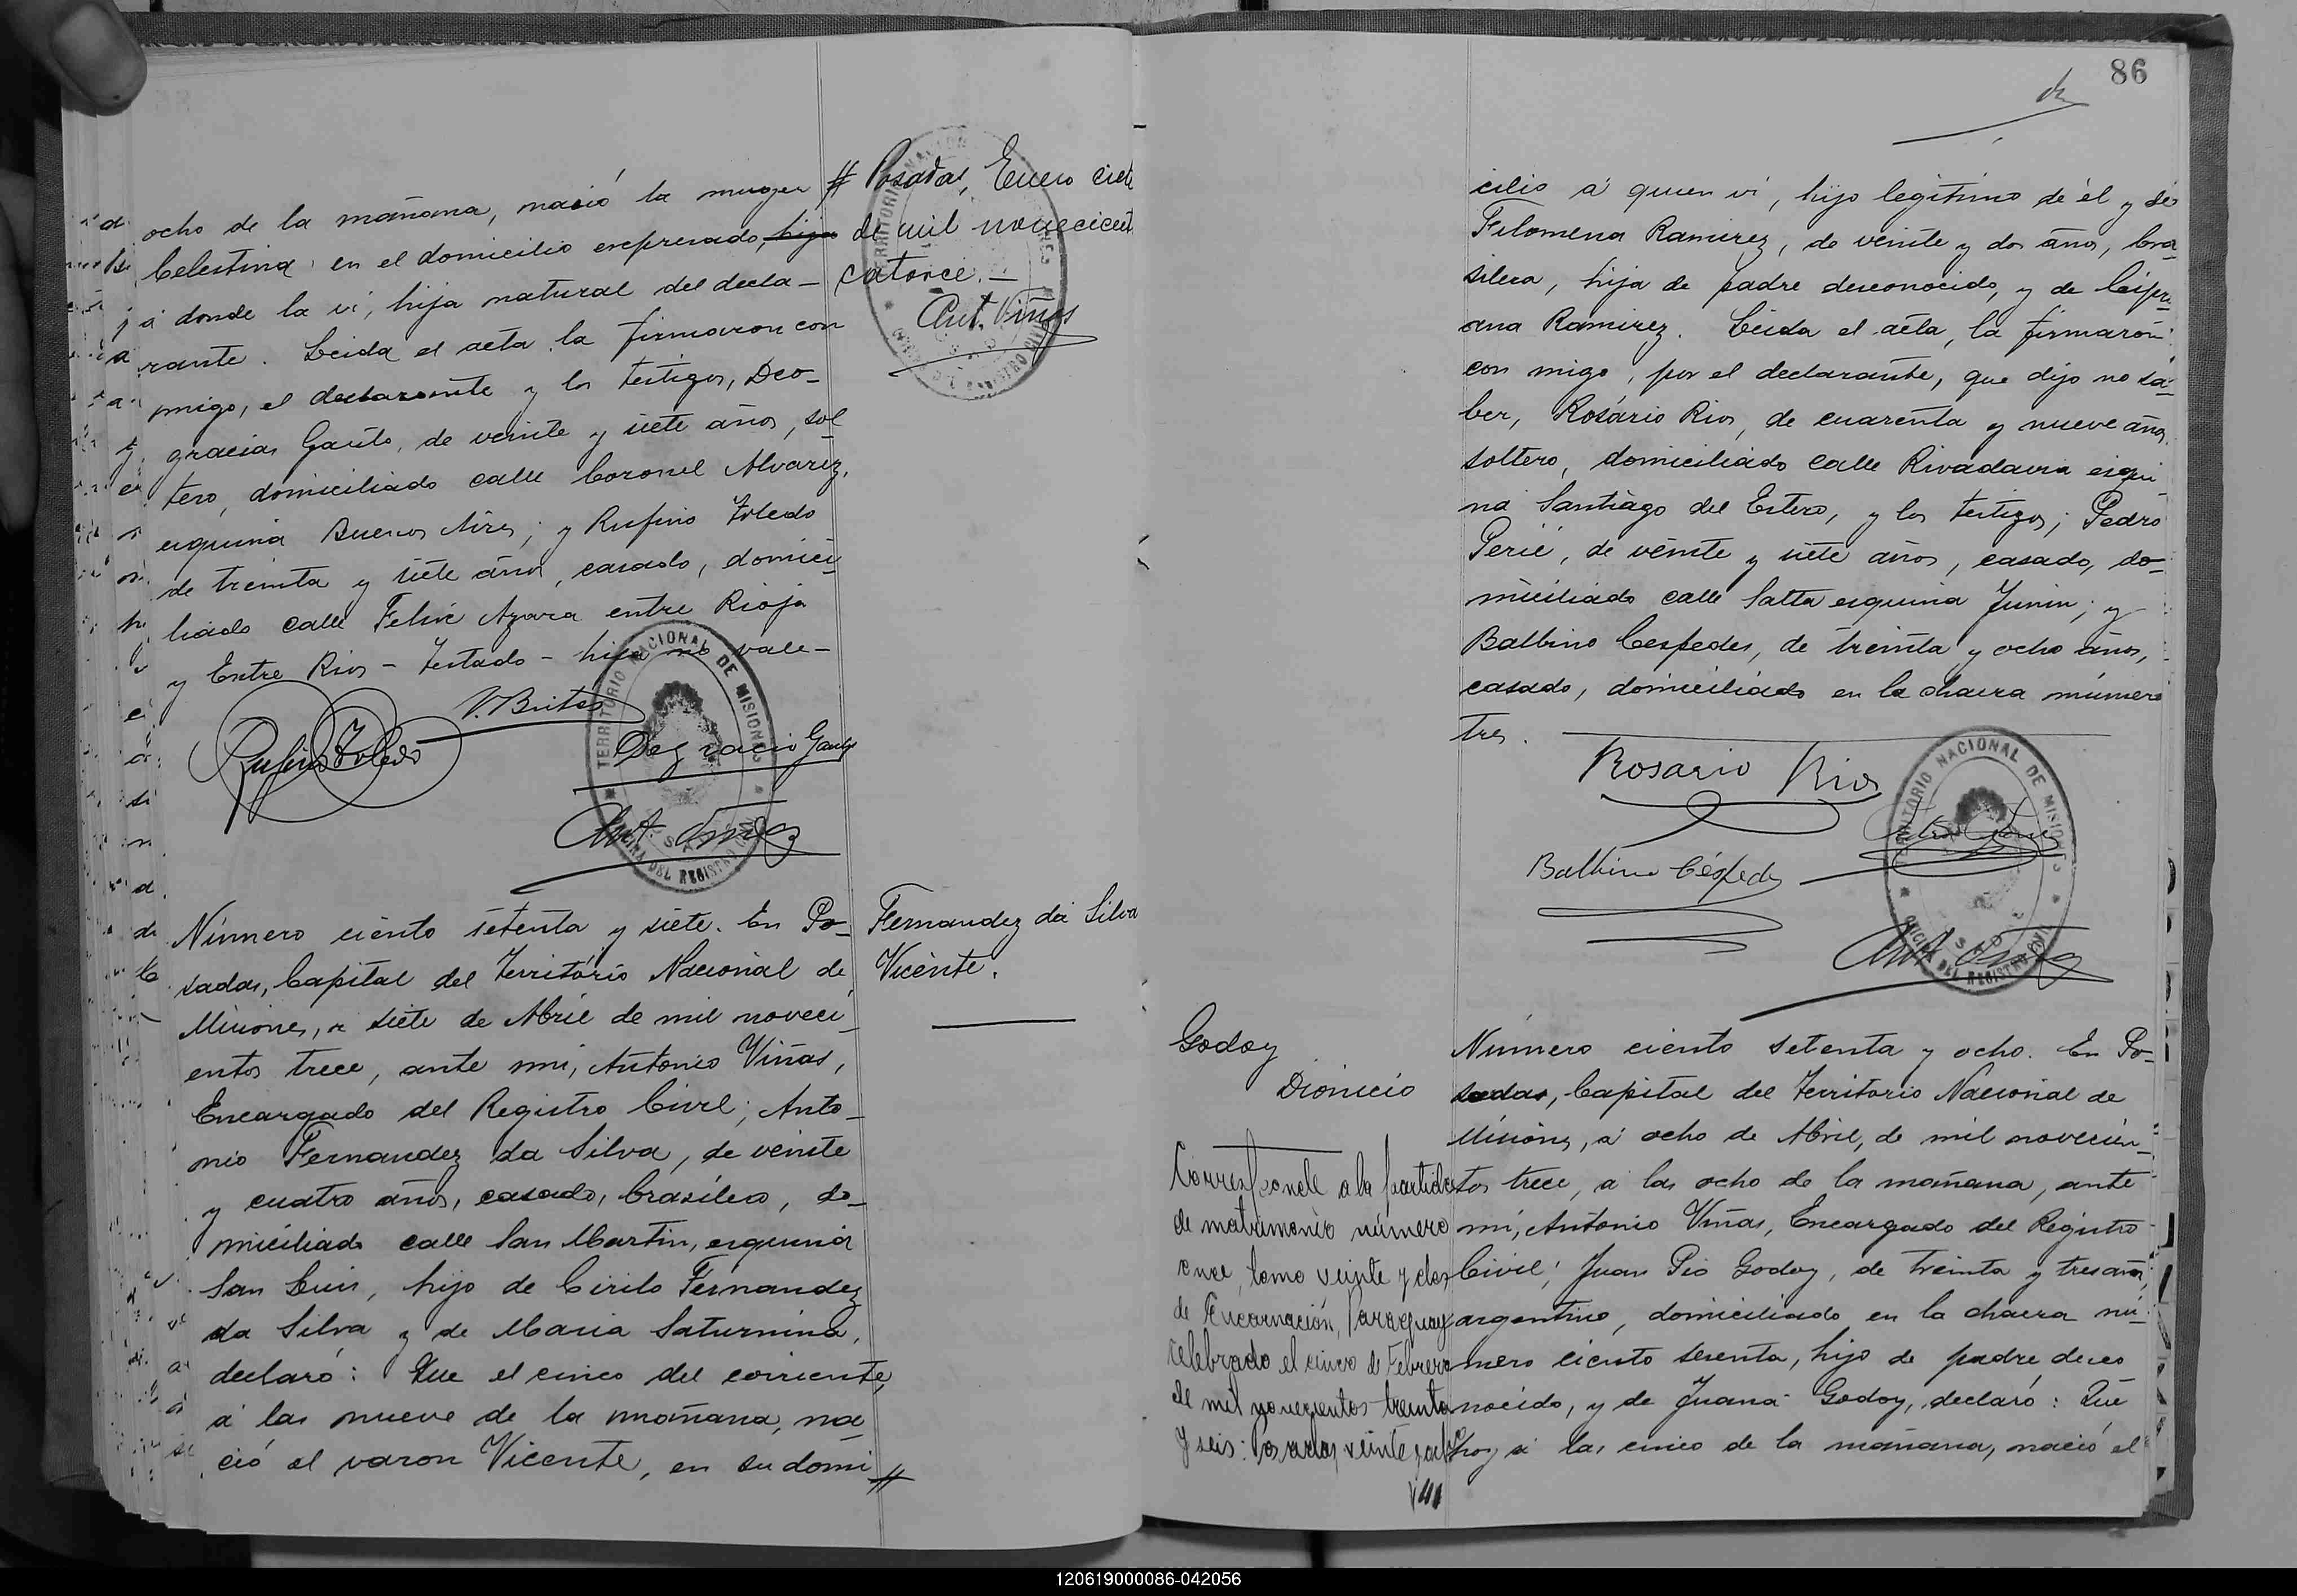 ocho de la mañana, nació la muger
Celestina en el domicilio expresado, hija
á donde la ví, hija natural del decla-
rante. Leida el acta la firmaron con
migo, el declarante y los testigos, Deo-
gracias Gauto, de veinte y siete años, sol
tero, domiciliado calle Coronel Alvarez,
esquina Buenos Aires; y Rufino Toledo
de treinta y siete años, casado, domici-
liado calle Felix Azara entre Rioja
y Entre Rios - Testado - hija no vale-
V. Brites
Rufino Toledo
Deogracio Gauto
Ant. Viñas
TERRITORIO NACIONAL DE MISIONES
OFICINA DEL REGISTRO CIVIL
# Posadas, Enero siete
de mil novecient
catorce.-
Ant. Viñas
Número ciento setenta y siete. En Po-
sadas, Capital del Territorio Nacional de
Misiones, a siete de Abril de mil noveci-
entos trece, ante mi, Antonio Viñas,
Encargado del Registro Civil; Anto-
nio Fernandez da Silva, de veinte
y cuatro años, casado, brasilero, do-
miciliado calle San Martin, esquina
San Luis, hijo de Cirilo Fernandez
da Silva y de Maria Saturnina,
declaró: Que el cinco del corriente,
á las nueve de la mañana, na-
ció el varon Vicente, en su domi #
Fernandez da Silva
Vicente.
86
cilio á quien ví, hijo legitimo de él y de
Filomena Ramirez, de veinte y dos años, bra
silera, hija de padre desconocido, y de Cipri
ana Ramirez. Leida el acta, la firmaron
con migo, por el declarante, que dijo no sa-
ber, Rosario Rios, de cuarenta y nueve años,
soltero, domiciliado calle Rivadavia esqui
na Santiago del Estero, y los testigos; Pedro
Perié, de veinte y siete años, casado, do-
miciliado calle Salta esquina Junin; y
Balbino Cespedes, de treinta y ocho años,
casado, domiciliado en la chacra número
tres.
Rosario Rios
Balbino Céspedes
Ant. Viñas
TERRITORIO NACIONAL DE MISIONES
OFICINA DEL REGISTRO CIVIL
Godoy
Dionicio
Corresponde a la partida
de matrimonio número
once, tomo veinte y dos
de Encarnación, Paraguay
celebrado el cinco de Febrero
de mil novecientos treinta
y seis: Posadas, veinte
V41
Número ciento setenta y ocho. En Po-
sadas, Capital del Territorio Nacional de
Misiones, á ocho de Abril, de mil novecien-
tos trece, á las ocho de la mañana, ante
mí, Antonio Viñas, Encargado del Registro
Civil; Juan Pio Godoy, de treinta y tres años,
argentino, domiciliado en la chacra nú-
mero ciento sesenta, hijo de padre desco
nocido, y de Juana Godoy, declaró: Que
hoy á las cinco de la mañana, nació el
120619000086-042056